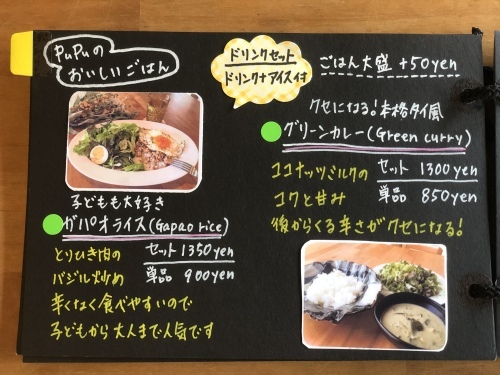 PuPuの
おいしいごはん
ドリンクセット
ドリンク+アイス付
ごはん大盛 +50yen
子どもも大好き
ガパオライス(Gapao rice)
とりひき肉の
バジル炒め
セット 1350yen
単品 900yen
辛くなく食べやすいので
子どもから大人まで人気です
クセになる!本格タイ風
グリーンカレー(Green curry)
ココナッツミルクの
コクと甘み
セット 1300yen
単品 850yen
後からくる辛さがクセになる!